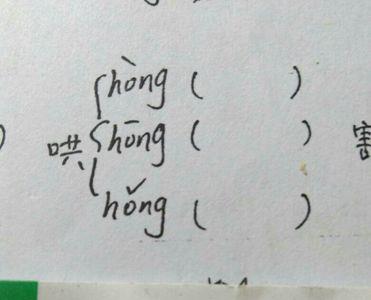 hòng ( )
哄 hōng ( ) 害
hǒng ( )